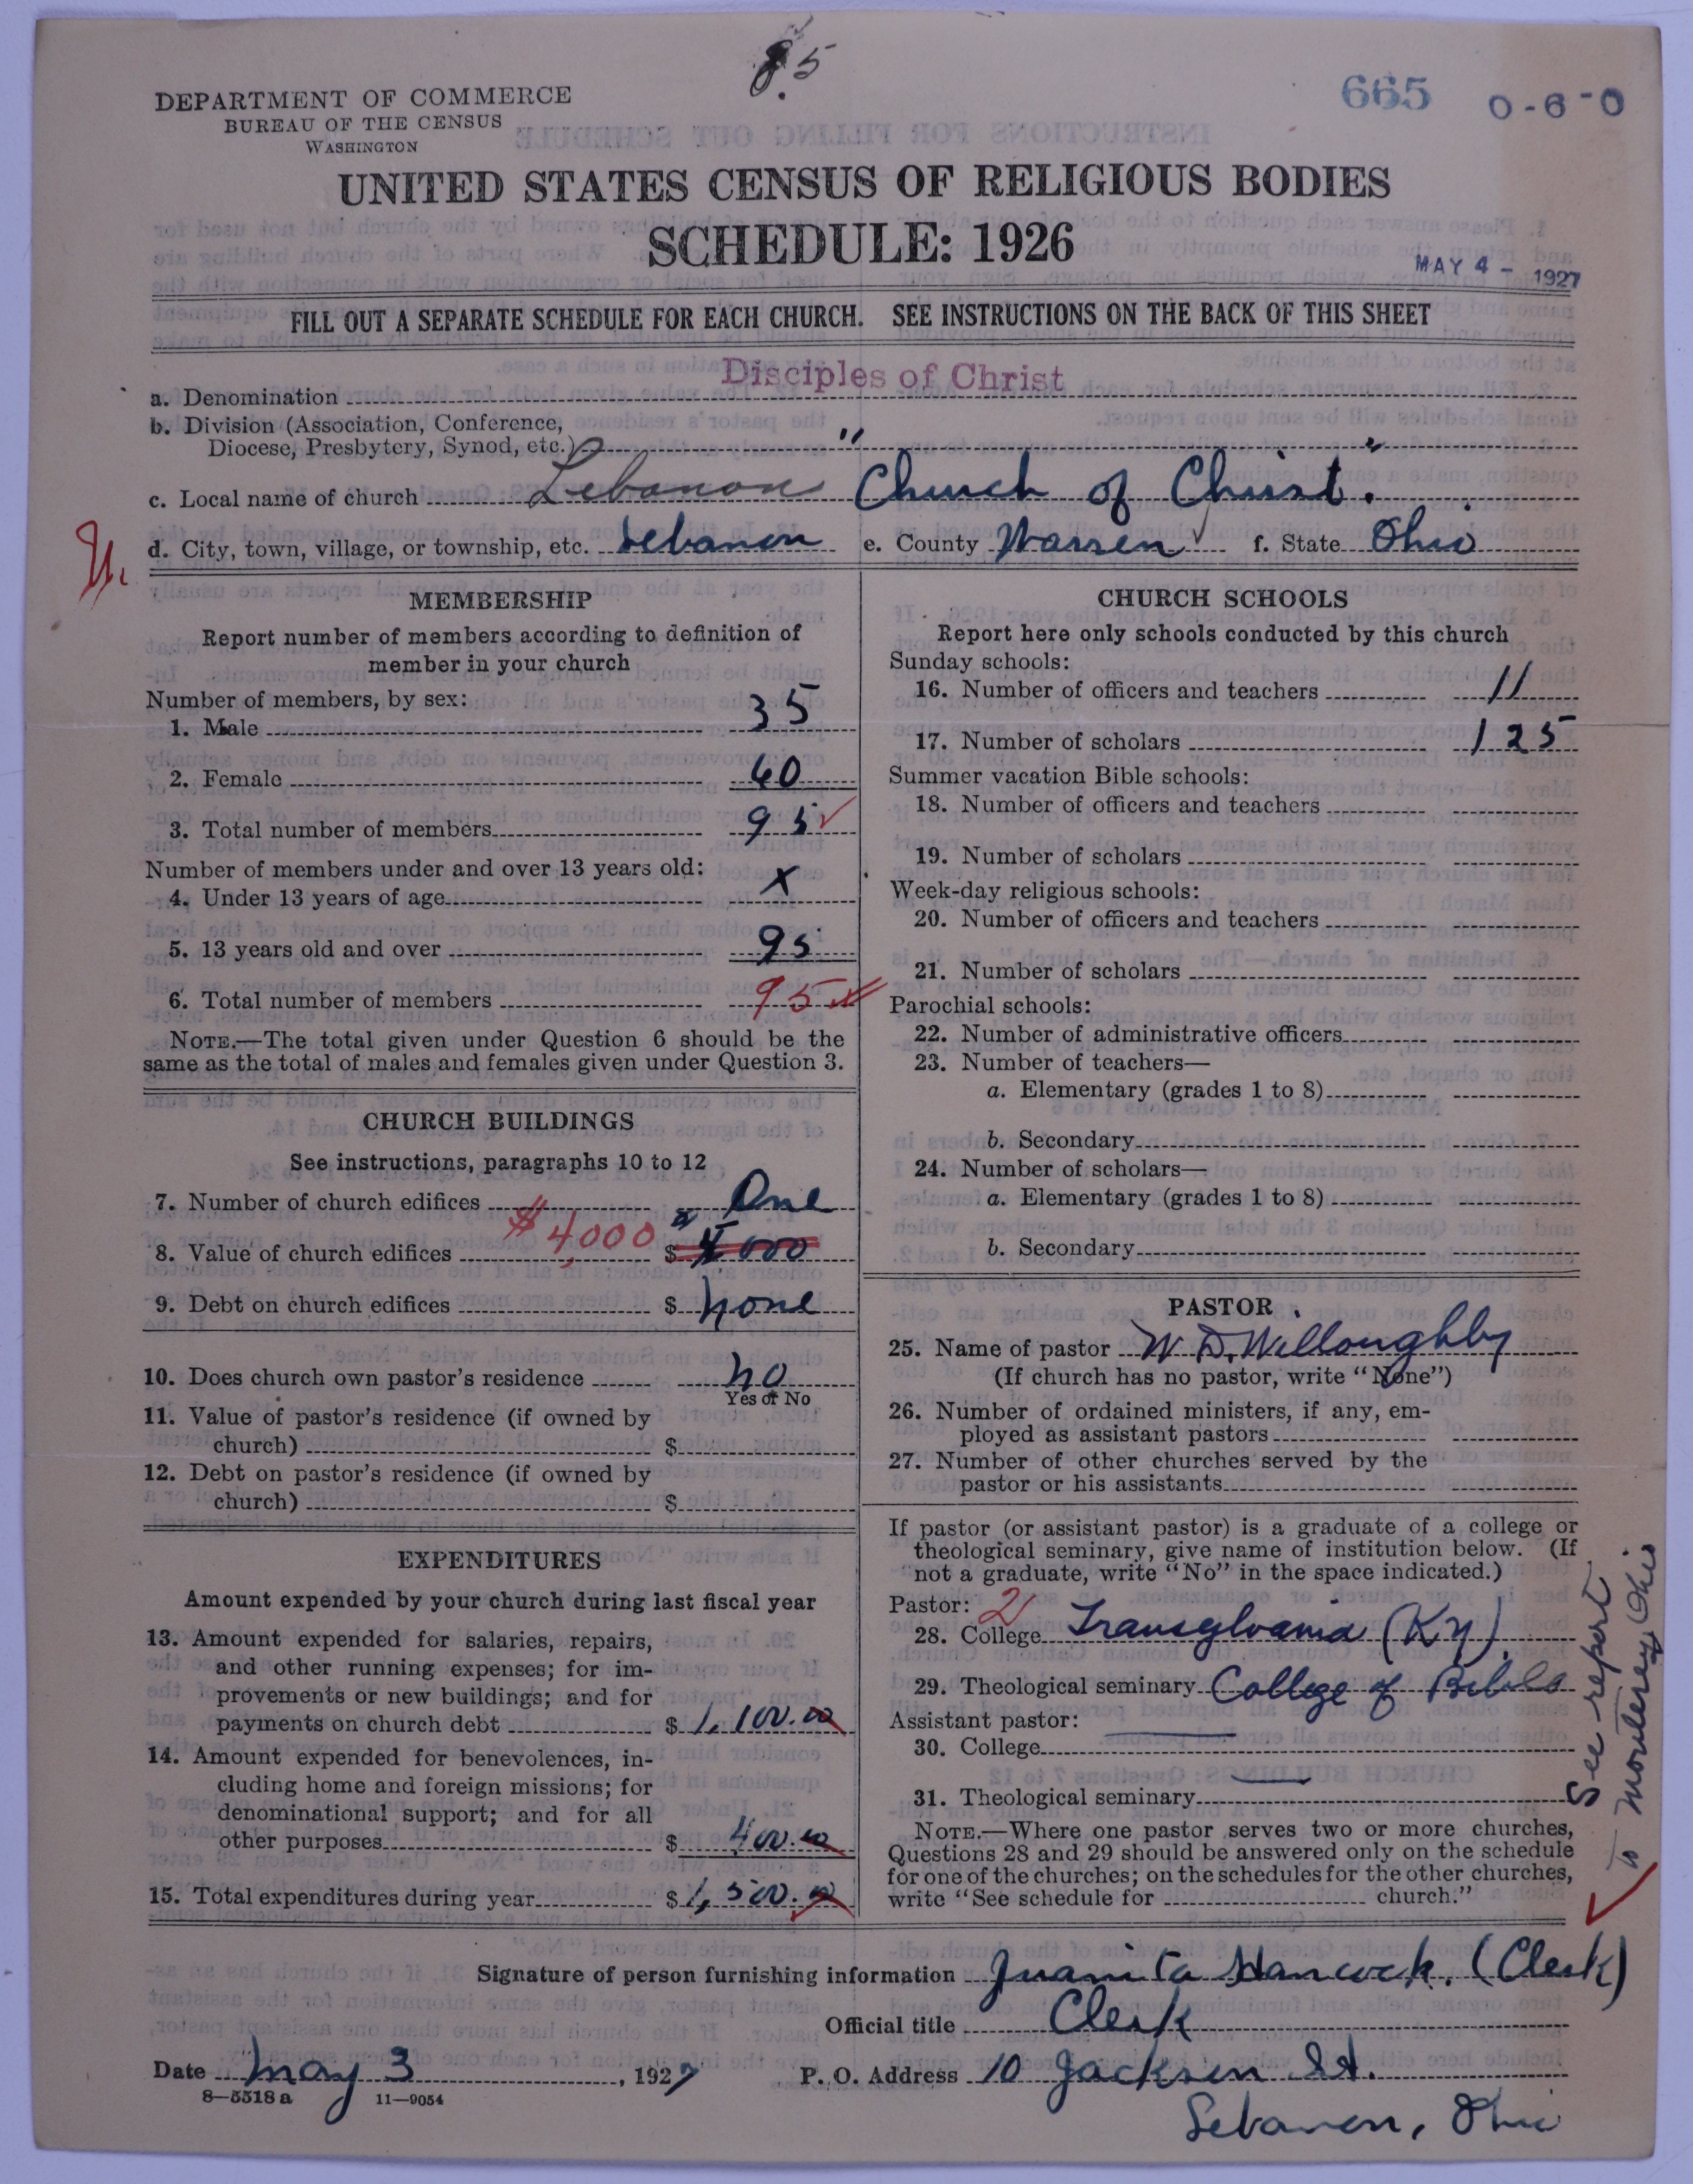 85
665 0-6-0
DEPARTMENT OF COMMERCE
BUREAU OF THE CENSUS
WASHINGTON
UNITED STATES CENSUS OF RELIGIOUS BODIES
SCHEDULE: 1926
MAY 4 - 1927
FILL OUT A SEPARATE SCHEDULE FOR EACH CHURCH. SEE INSTRUCTIONS ON THE BACK OF THIS SHEET
a. Denomination Disciples of Christ
b. Division (Association, Conference,
Diocese, Presbytery, Synod, etc.) " "
c. Local name of church Lebanon Church of Christ.
d. City, town, village, or township, etc. Lebanon e. County Warren f. State Ohio
MEMBERSHIP
Report number of members according to definition of
member in your church
Number of members, by sex:
1. Male 35
2. Female 60
3. Total number of members 95
Number of members under and over 13 years old:
4. Under 13 years of age x
5. 13 years old and over 95
6. Total number of members 95
NOTE.—The total given under Question 6 should be the
same as the total of males and females given under Question 3.
CHURCH BUILDINGS
See instructions, paragraphs 10 to 12
7. Number of church edifices One
8. Value of church edifices $4,000 $ 4000
9. Debt on church edifices $ none
10. Does church own pastor's residence no
Yes or No
11. Value of pastor's residence (if owned by
church) $
12. Debt on pastor's residence (if owned by
church) $
EXPENDITURES
Amount expended by your church during last fiscal year
13. Amount expended for salaries, repairs,
and other running expenses; for im-
provements or new buildings; and for
payments on church debt $ 1,100.00
14. Amount expended for benevolences, in-
cluding home and foreign missions; for
denominational support; and for all
other purposes $ 400.00
15. Total expenditures during year $ 1,500.00
CHURCH SCHOOLS
Report here only schools conducted by this church
Sunday schools:
16. Number of officers and teachers 11
17. Number of scholars 125
Summer vacation Bible schools:
18. Number of officers and teachers
19. Number of scholars
Week-day religious schools:
20. Number of officers and teachers
21. Number of scholars
Parochial schools:
22. Number of administrative officers
23. Number of teachers—
a. Elementary (grades 1 to 8)
b. Secondary
24. Number of scholars—
a. Elementary (grades 1 to 8)
b. Secondary
PASTOR
25. Name of pastor W. D. Willoughby
(If church has no pastor, write "None")
26. Number of ordained ministers, if any, em-
ployed as assistant pastors
27. Number of other churches served by the
pastor or his assistants
If pastor (or assistant pastor) is a graduate of a college or
theological seminary, give name of institution below. (If
not a graduate, write "No" in the space indicated.)
Pastor: 2
28. College Transylvania (Ky).
29. Theological seminary College of Bible
Assistant pastor:
30. College
31. Theological seminary
NOTE.—Where one pastor serves two or more churches,
Questions 28 and 29 should be answered only on the schedule
for one of the churches; on the schedules for the other churches,
write "See schedule for church."
See report
to Monterey, Ohio
Signature of person furnishing information Juanita Hancock. (Clerk)
Official title Clerk
Date May 3, 1927 P. O. Address 10 Jackson St.
Lebanon, Ohio
8—5518 a 11—9054